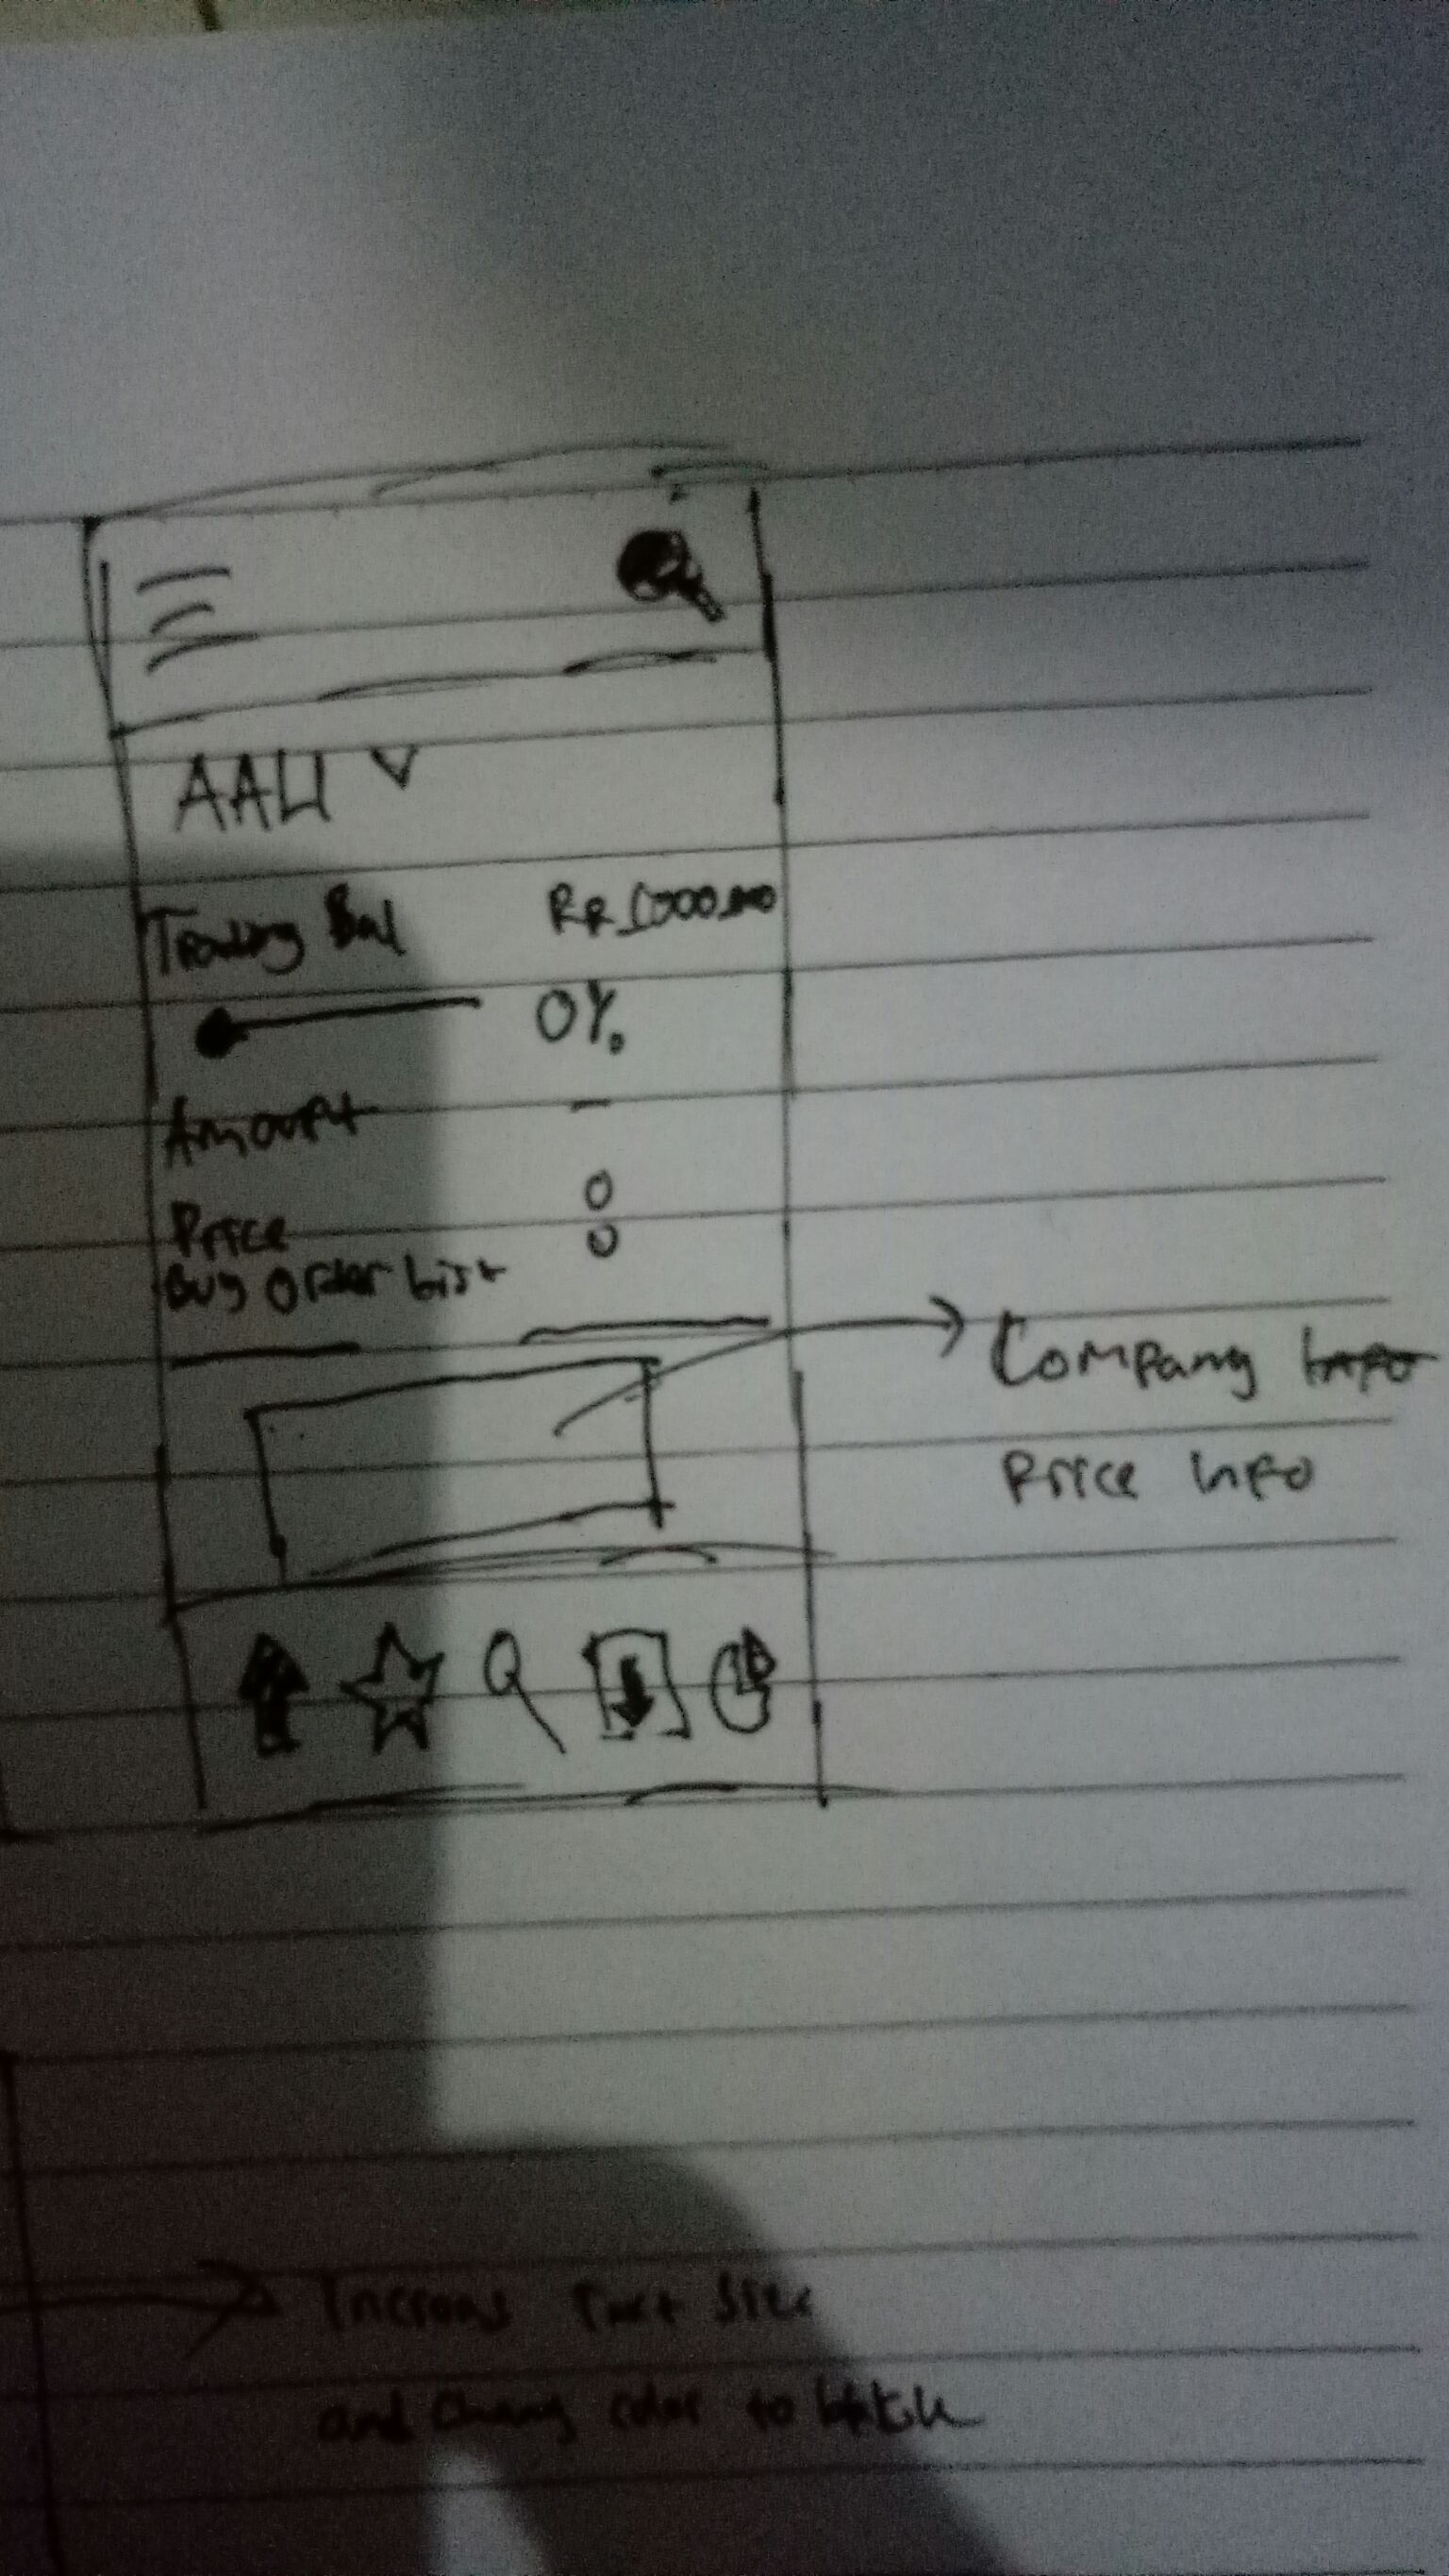 AALI
Trading Bal
0%
Amount -
0
Price
0
Buy Order List
Company Info
Price Info
Increas Font Size
and Chang color to black